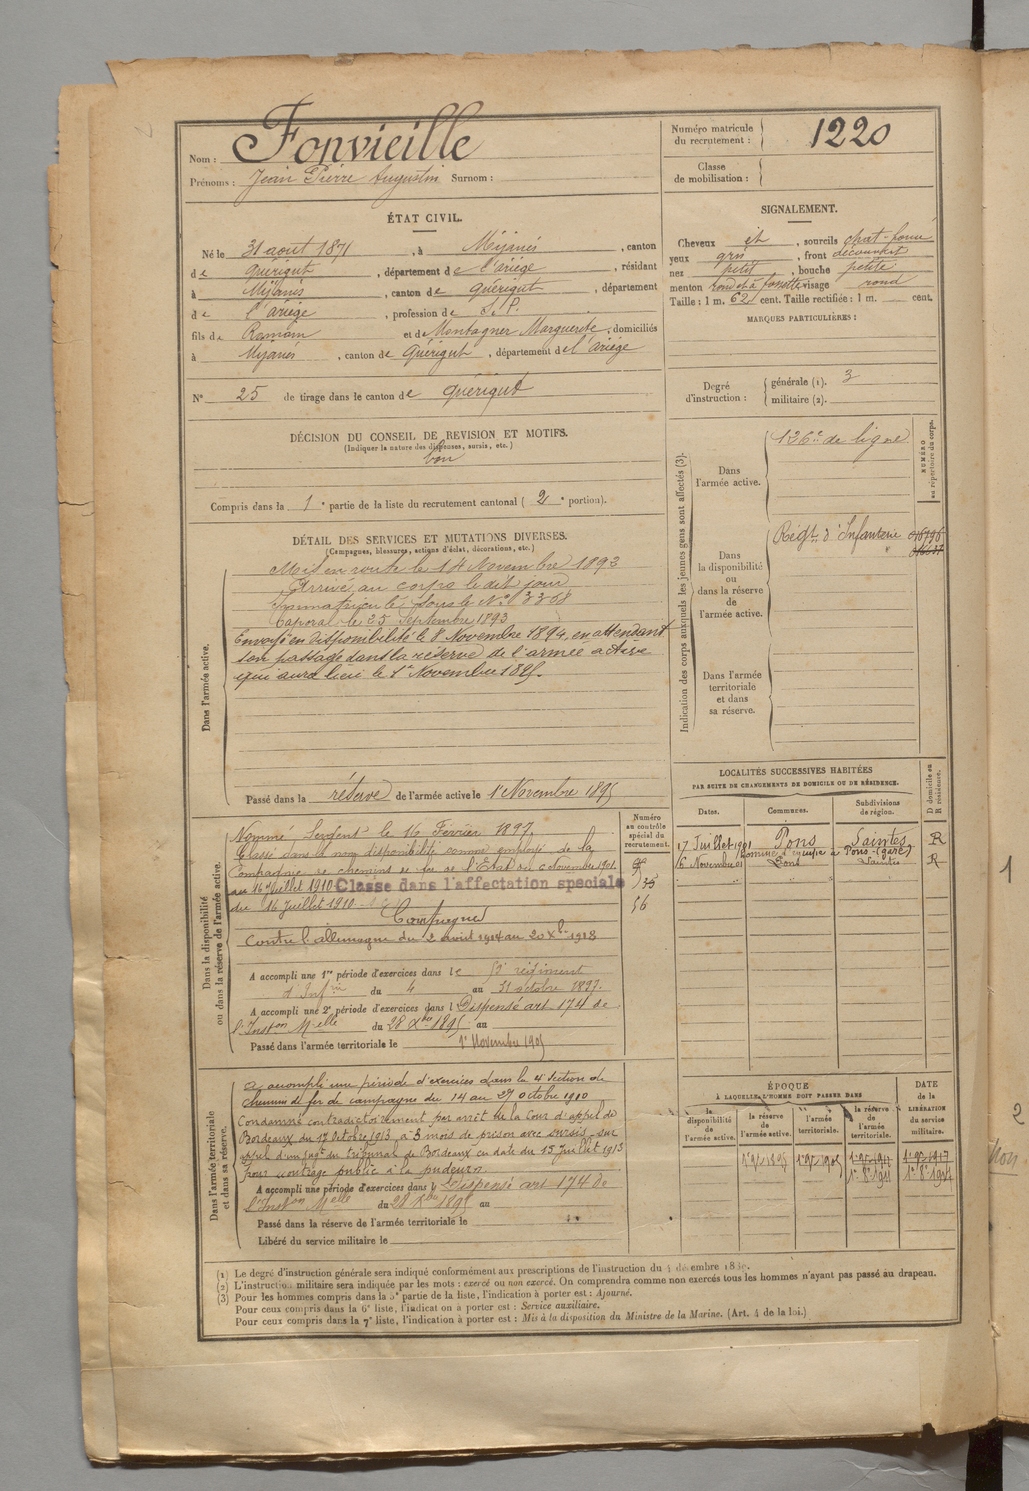 Nom : Fonvieille
Prénoms : Jean Pierre Augustin Surnom :
Numéro matricule du recrutement : 1220
Classe de mobilisation :
ÉTAT CIVIL.
Né le 31 aout 1871, à Mijanès, canton
de Quérigut, département de l'ariège, résidant
à Mijanès, canton de Quérigut, département
de l'ariège, profession de S. P.
fils de Romain et de Montagner Marguerite, domiciliés
à Mijanès, canton de Quérigut, département de l'ariège
N° 25 de tirage dans le canton de Quérigut
SIGNALEMENT.
Cheveux ch, sourcils chat-foncé
yeux gris, front découvert
nez petit, bouche petite
menton rond et à fossette visage rond
Taille : 1 m. 62 cent. Taille rectifiée : 1 m. cent.
MARQUES PARTICULIÈRES :
Degré d'instruction : générale (1). 3
militaire (2).
DÉCISION DU CONSEIL DE REVISION ET MOTIFS.
(Indiquer la nature des dispenses, sursis, etc.)
bon
Compris dans la 1e partie de la liste du recrutement cantonal ( 2e portion).
DÉTAIL DES SERVICES ET MUTATIONS DIVERSES.
(Campagnes, blessures, actions d'éclat, décorations, etc.)
Dans l'armée active.
Mis en route le 14 Novembre 1892
Arrivé au corps le dit jour
Immatriculé sous le N° 3358
Caporal le 25 Septembre 1893
Envoyé en disponibilité le 8 Novembre 1894, en attendant
son passage dans la réserve de l'armée active
qui aura lieu le 1er Novembre 1895.
Passé dans la réserve de l'armée active le 1er Novembre 1895
Indication des corps auxquels les jeunes gens sont affectés (3).
NUMÉRO au répertoire du corps.
Dans l'armée active.
126e de ligne
Dans la disponibilité ou dans la réserve de l'armée active.
Régt. d'Infanterie
Dans l'armée territoriale et dans sa réserve.
LOCALITÉS SUCCESSIVES HABITÉES
PAR SUITE DE CHANGEMENTS DE DOMICILE OU DE RÉSIDENCE.
Dates. Communes. Subdivisions de région. D domicile ou R résidence.
17 Juillet 1901 Pons Saintes R
homme d'équipe à Pons (gare)
6 Novembre 01 Pons Saintes R
Dans la disponibilité ou dans la réserve de l'armée active.
Numéro au contrôle spécial du recrutement.
Nommé Sergent le 16 Février 1897.
Classé dans la non disponibilité comme employé de la
Compagnie de chemins de fer de l'État du 6 Novembre 1901
au 16 Juillet 1910 Classe dans l'affectation speciale
du 16 Juillet 1910
56
Campagnes
Contre l'allemagne du 2 août 1914 au 20 Xbre 1918
A accompli une 1re période d'exercices dans le régiment
d'Infrie du 4 au 31 octobre 1897.
A accompli une 2e période d'exercices dans l Dispensé art 174 de
l'Inston Melle du 28 Xbre 1895 au
Passé dans l'armée territoriale le 1er Novembre 1905
Dans l'armée territoriale et dans sa réserve.
A accompli une période d'exercices dans la 4e Section de
chemins de fer de campagne du 14 au 27 octobre 1910
Condamné contradictoirement par arrêt de la Cour d'appel de
Bordeaux du 17 Octobre 1913 à 3 mois de prison avec sursis, sur
appel d'un jugt du tribunal de Bordeaux en date du 15 Juillet 1913
pour outrage public à la pudeur.
A accompli une période d'exercices dans l Dispensé art 174 de
l'Inston Melle du 28 Xbre 1895 au
Passé dans la réserve de l'armée territoriale le
Libéré du service militaire le
ÉPOQUE
À LAQUELLE L'HOMME DOIT PASSER DANS
la disponibilité de l'armée active.
la réserve de l'armée active.
l'armée territoriale.
la réserve de l'armée territoriale.
DATE de la LIBÉRATION du service militaire.
(1) Le degré d'instruction générale sera indiqué conformément aux prescriptions de l'instruction du 4 décembre 1889.
(2) L'instruction militaire sera indiquée par les mots : exercé ou non exercé. On comprendra comme non exercés tous les hommes n'ayant pas passé au drapeau.
(3) Pour les hommes compris dans la 5e partie de la liste, l'indication à porter est : Ajourné.
Pour ceux compris dans la 6e liste, l'indication à porter est : Service auxiliaire.
Pour ceux compris dans la 7e liste, l'indication à porter est : Mis à la disposition du Ministre de la Marine. (Art. 4 de la loi.)
1
2